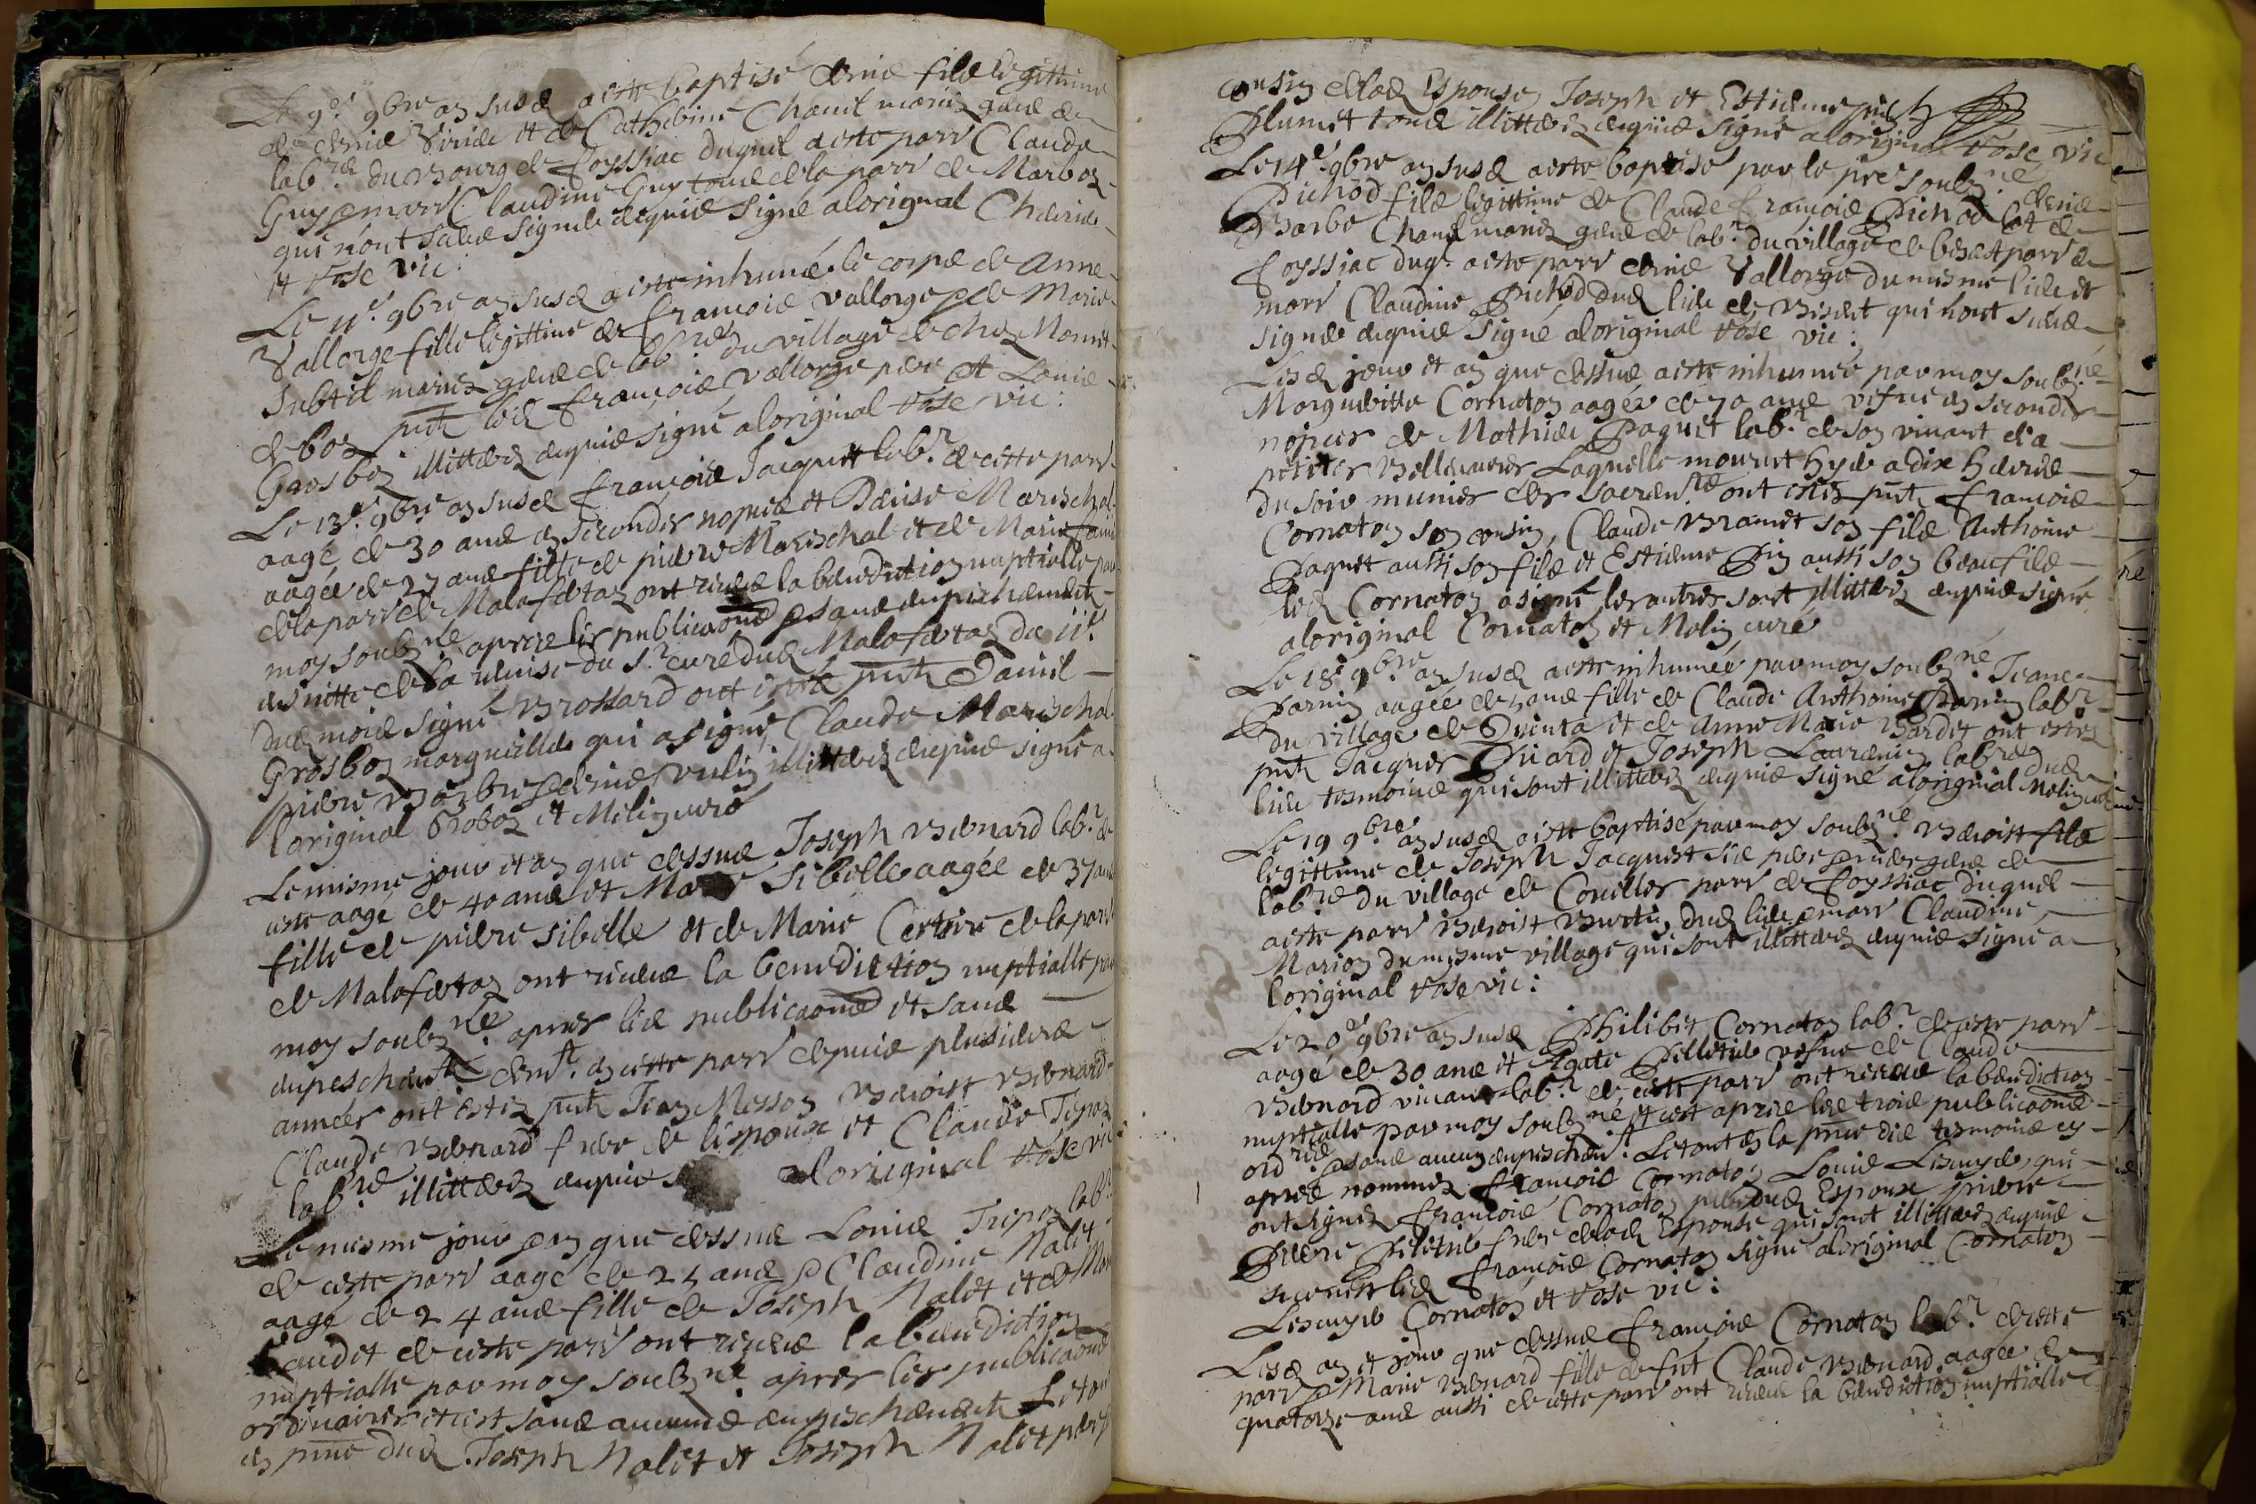 Le 9e 9bre an susd a esté baptisé denis fils legittime
de denis Viride et de Catherine Chanel mariez gens de
labrge du bourg de Foyssiac duquel a esté parr Claude
Guy et marr Claudine Guy tous de la parr de Marboz
qui n'ont sceus signer depuis signé a loriginal
et Vose vic:
Le 11e 9bre an susd a esté inhumé le corps de Anne
Vallorge fille legittime de François Vallorge et de Marie
Subtil mariez gens de labrge du village de chez Monnet
de boz pnts led François Vallorge pere et Louis
Grosboz illitterez depuis signé a loriginal Vose vic:
Le 13e 9bre an susd François Jacquet labr de cette parr
aagé de 30 ans en secondes nopces et Denise Mareschal
aagée de 27 ans fille de pierre Mareschal et de Marie
de la parr de Malafretaz ont receus la benediction nuptialle par
moy soubzné apres les publicaons et sans empeschement
du Sr curé dud Malafretaz du 11e
dud mois signé Brossard ont estés pnts Daniel
Grosboz marguillier qui a signé, Claude Mareschal
pierre et denis illitterez depuis signé a
loriginal Groboz et Melin curé
Le mesme jour et an que dessus Joseph Bernard labr de
ceste aagé de 40 ans et Marie Sibelle aagée de 37 ans
fille de pierre Sibelle et de Marie Certine de la parr
de Malafretaz ont receus la benediction nuptialle par
moy soubzné apres les publicaons et sans
empeschemt demt en cette parr depuis plusieurs
années ont estez pnts Jean Messon Benoist Bernard
Claude Bernard frere de lespoux et Claude Tripoz
labrs illitterez depuis a loriginal Vose vic
Le mesme jour et an que dessus Louis Tripoz labr
de ceste parr aagé de 25 ans et Claudine Nalet
aage de 24 ans fille de Joseph Nalet et de
Gaudet de ceste parr ont receus la benediction
nuptialle par moy soubzné apres les publicaons
ordinaires et cest sans aucuns empeschements Le tout
en pnce dud Joseph Nalet et Joseph Nalet pere
cousin de lad Espouse, Joseph et Estienne
Plumet tous illitterez depuis signé a loriginal Vose vic
Le 14e 9bre an susd a esté baptisé par le pre soubzné denis
Pichod fils legittime de Claude François Pichod et de
Barbe Chanel mariez gens de labr du village de besat parr de
Foyssiac duql a esté parr denis Vallorge du mesme lieu et
marr Claudine Pichod dud lieu de besat qui n'ont sceus
signer depuis signé a loriginal Vose vic:
Lesd jour et an que dessus a esté inhumée par moy soubzné
Margueritte Cornaton aagée de 70 ans vefve en secondes
nopces de Mathieu Paquet labr de son vivant d'a
petites Laquelle mourut hyer a dix heures
du soir munies des sacremts ont estez pnts François
Cornaton son cousin, Claude Bramet son fils Anthoine
Paquet aussi son fils et Estienne Pin aussi son beaufils
led Cornaton a signé les autres sont illitterez depuis signé
a loriginal Cornaton et Melin curé
Le 18e 9bre an susd a esté inhumée par moy soubzné Jeanne
Parnin aagée de 5 ans fille de Claude Anthoine Parnin labr
du village de Quinta et de Anne Marie Bardet ont estez
pnts Jacques Puard et Joseph Laurencin labrs dud
lieu tesmoins qui sont illitterez depuis signé a loriginal Melin curé
Le 19 9bre an susd a esté baptisé par moy soubzné Benoist fils
legittime de Joseph Jacquet gens de
labrge du village de Couilles parr de Foyssiac duquel
a esté parr Benoist Burtin dud lieu et marr Claudine
Marion du mesme village qui sont illitterez depuis signé a
loriginal Vose vic:
Le 20e 9bre an susd Philibet Cornaton labr de ceste parr
aagé de 30 ans et Agate Pelletier vefve de Claude
Bernard vivant labr de ceste parr ont receus la benediction
nuptialle par moy soubzné et cest apres les trois publicaons
ordres et sans aucun empeschemt. Le tout en la pnce des tesmoins cy
apres nommez François Cornaton Louis Lescuyer, qui
ont signez François Cornaton pere dud Espoux pierre
Pierre Peletier frere de lad Espouse qui sont illitterez depuis
led François Cornaton signé a loriginal Cornaton
Lescuyer Cornaton et Vose vic:
Lesd an et jour que dessus François Cornaton labr de cette
parr et Marie Bernard fille de fut Claude Bernard aagée de
quatorze ans aussi de cette parr ont receus la benediction nuptialle